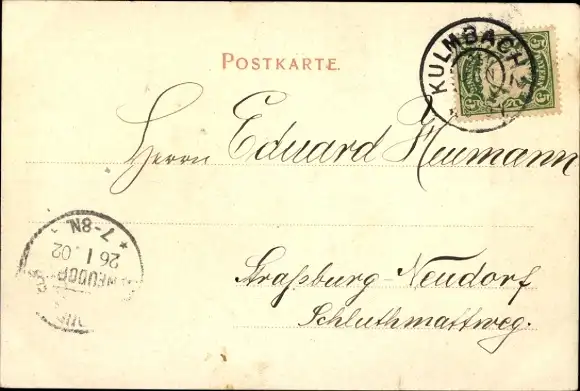 POSTKARTE.
KULMBACH
5 BAYERN 5
Herrn Eduard Neumann
Straßburg-Neudorf
Schluthmattweg.
* 7-8N.
26 1 02
NEUDORF